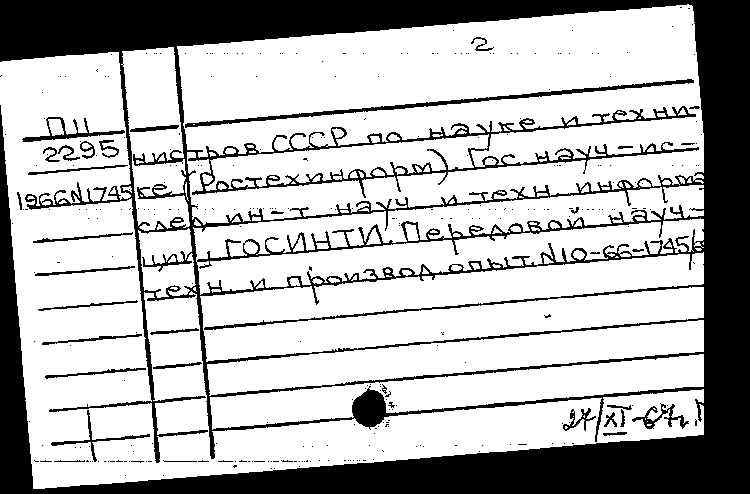 2
П11
2295
нистров СССР по науке и техни-
1966N1745 ке (Ростехинформ). Гос. науч-ис=
след. ин-т науч. и техн. информа
ции. ГОСИНТИ. Передовой науч.-
техн. и производ. опыт. N10-66-1745/6
27/XI-67г.